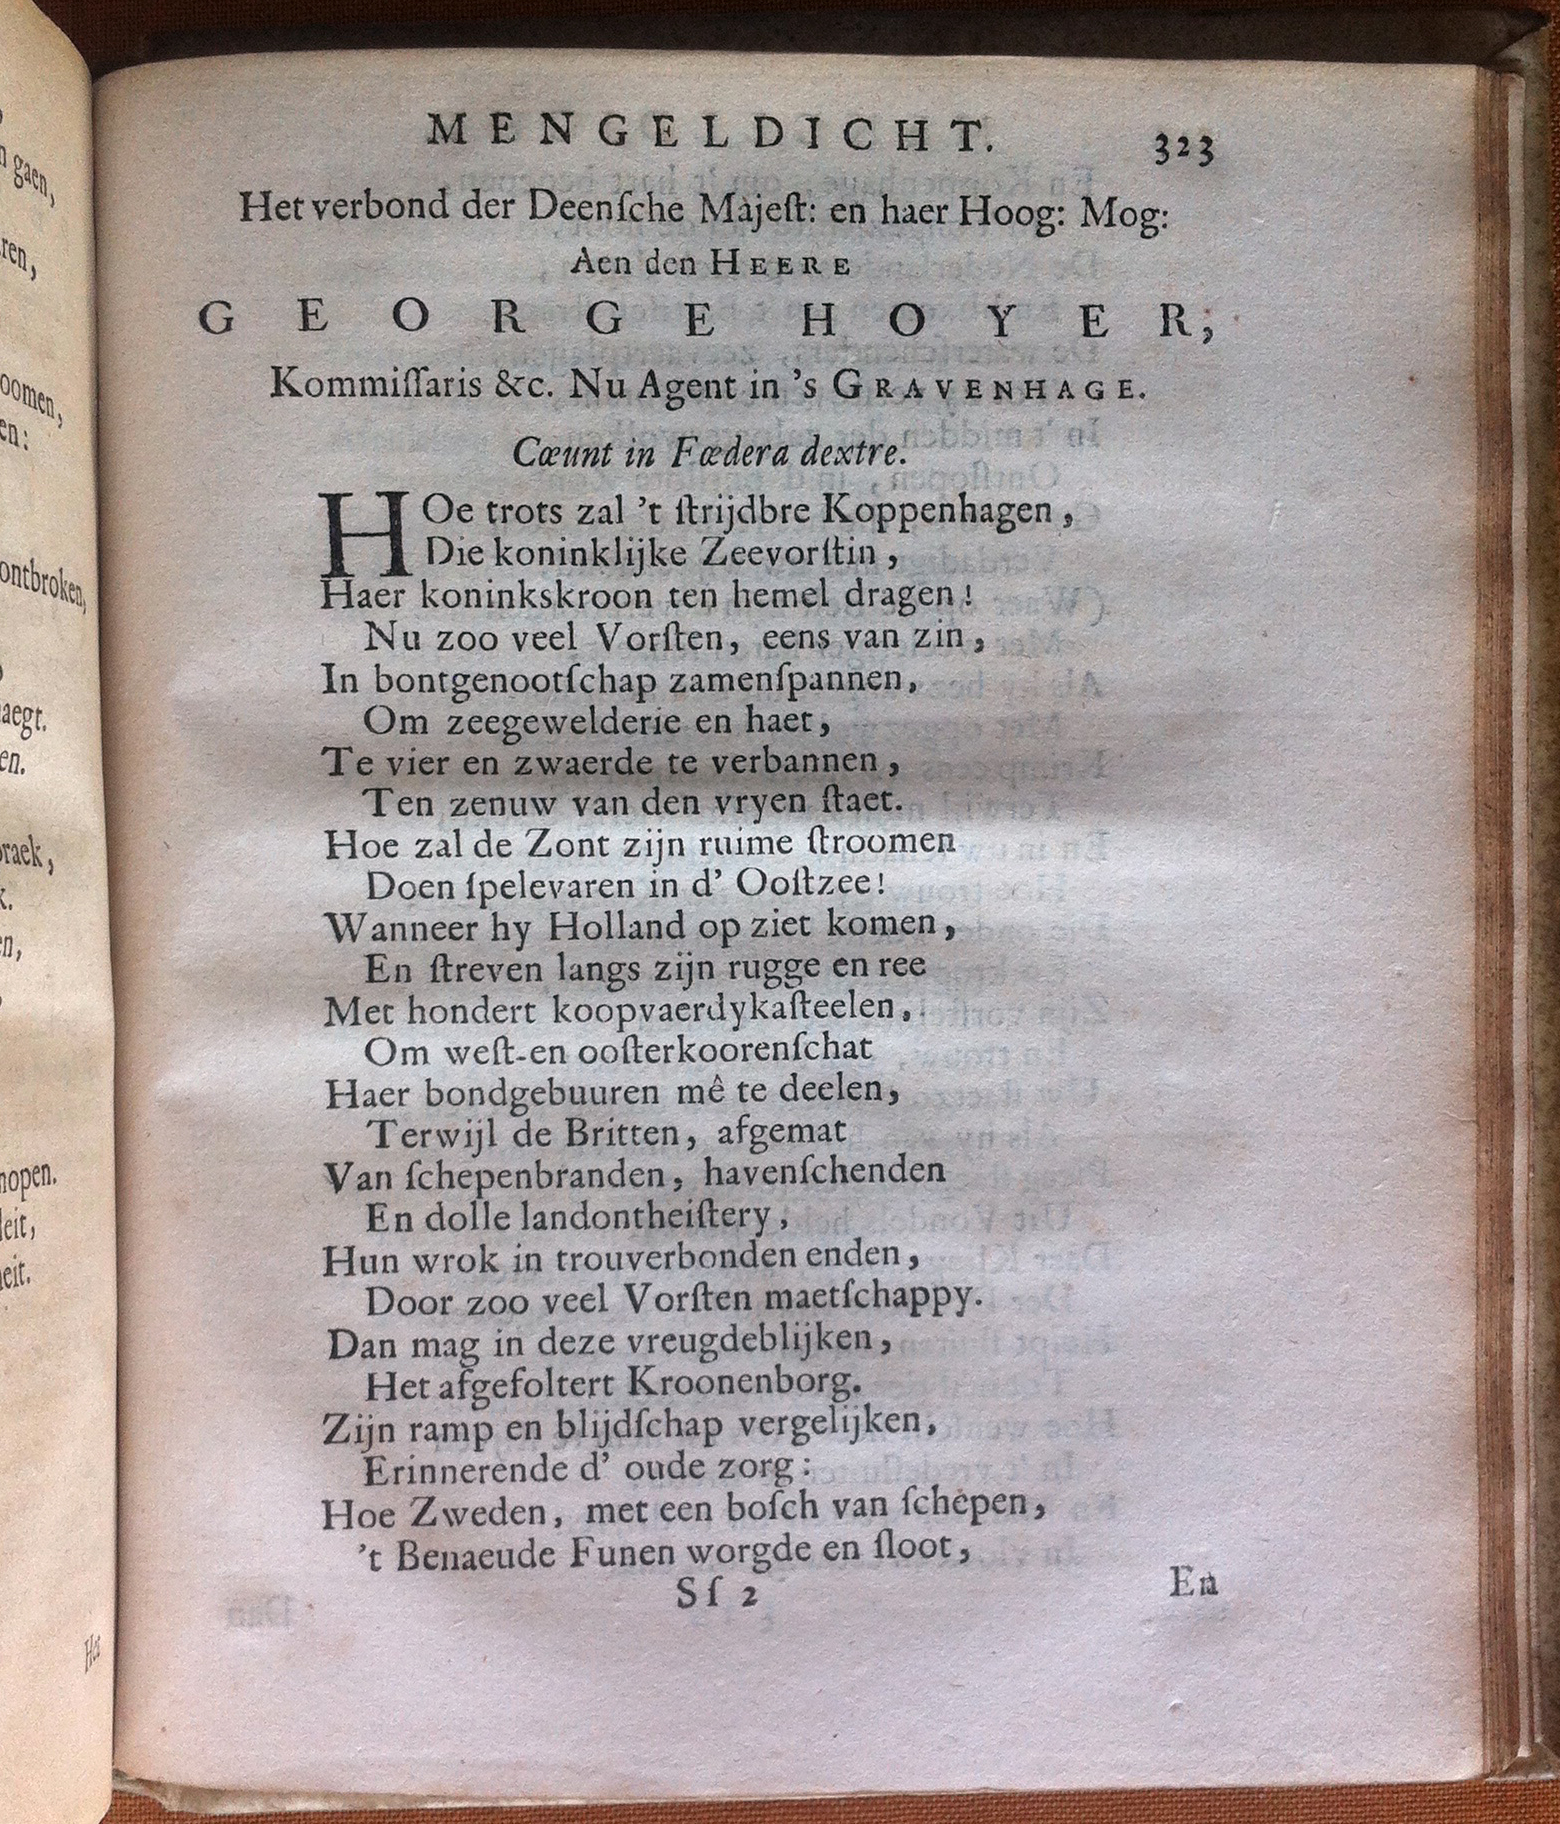 MENGELDICHT. 323
Het verbond der Deenſche Majeſt: en haer Hoog: Mog:
Aen den HEERE
GEORGE HOYER,
Kommiſſaris &c. Nu Agent in 's GRAVENHAGE.
Cœunt in Fœdera dextre.
HOe trots zal 't ſtrijdbre Koppenhagen,
Die koninklijke Zeevorſtin,
Haer koninkskroon ten hemel dragen!
Nu zoo veel Vorſten, eens van zin,
In bontgenootſchap zamenſpannen,
Om zeegewelderie en haet,
Te vier en zwaerde te verbannen,
Ten zenuw van den vryen ſtaet.
Hoe zal de Zont zijn ruime ſtroomen
Doen ſpelevaren in d' Ooſtzee!
Wanneer hy Holland op ziet komen,
En ſtreven langs zijn rugge en ree
Met hondert koopvaerdykaſteelen,
Om weſt-en ooſterkoorenſchat
Haer bondgebuuren mê te deelen,
Terwijl de Britten, afgemat
Van ſchepenbranden, havenſchenden
En dolle landontheiſtery,
Hun wrok in trouverbonden enden,
Door zoo veel Vorſten maetſchappy.
Dan mag in deze vreugdeblijken,
Het afgefoltert Kroonenborg.
Zijn ramp en blijdſchap vergelijken,
Erinnerende d' oude zorg:
Hoe Zweden, met een boſch van ſchepen,
't Benaeude Funen worgde en ſloot,
Sſ 2 En
n gaen,
ren,
oomen,
en:
ontbroken,
aegt.
en.
raek,
k.
n,
nopen.
leit,
eit.
Het